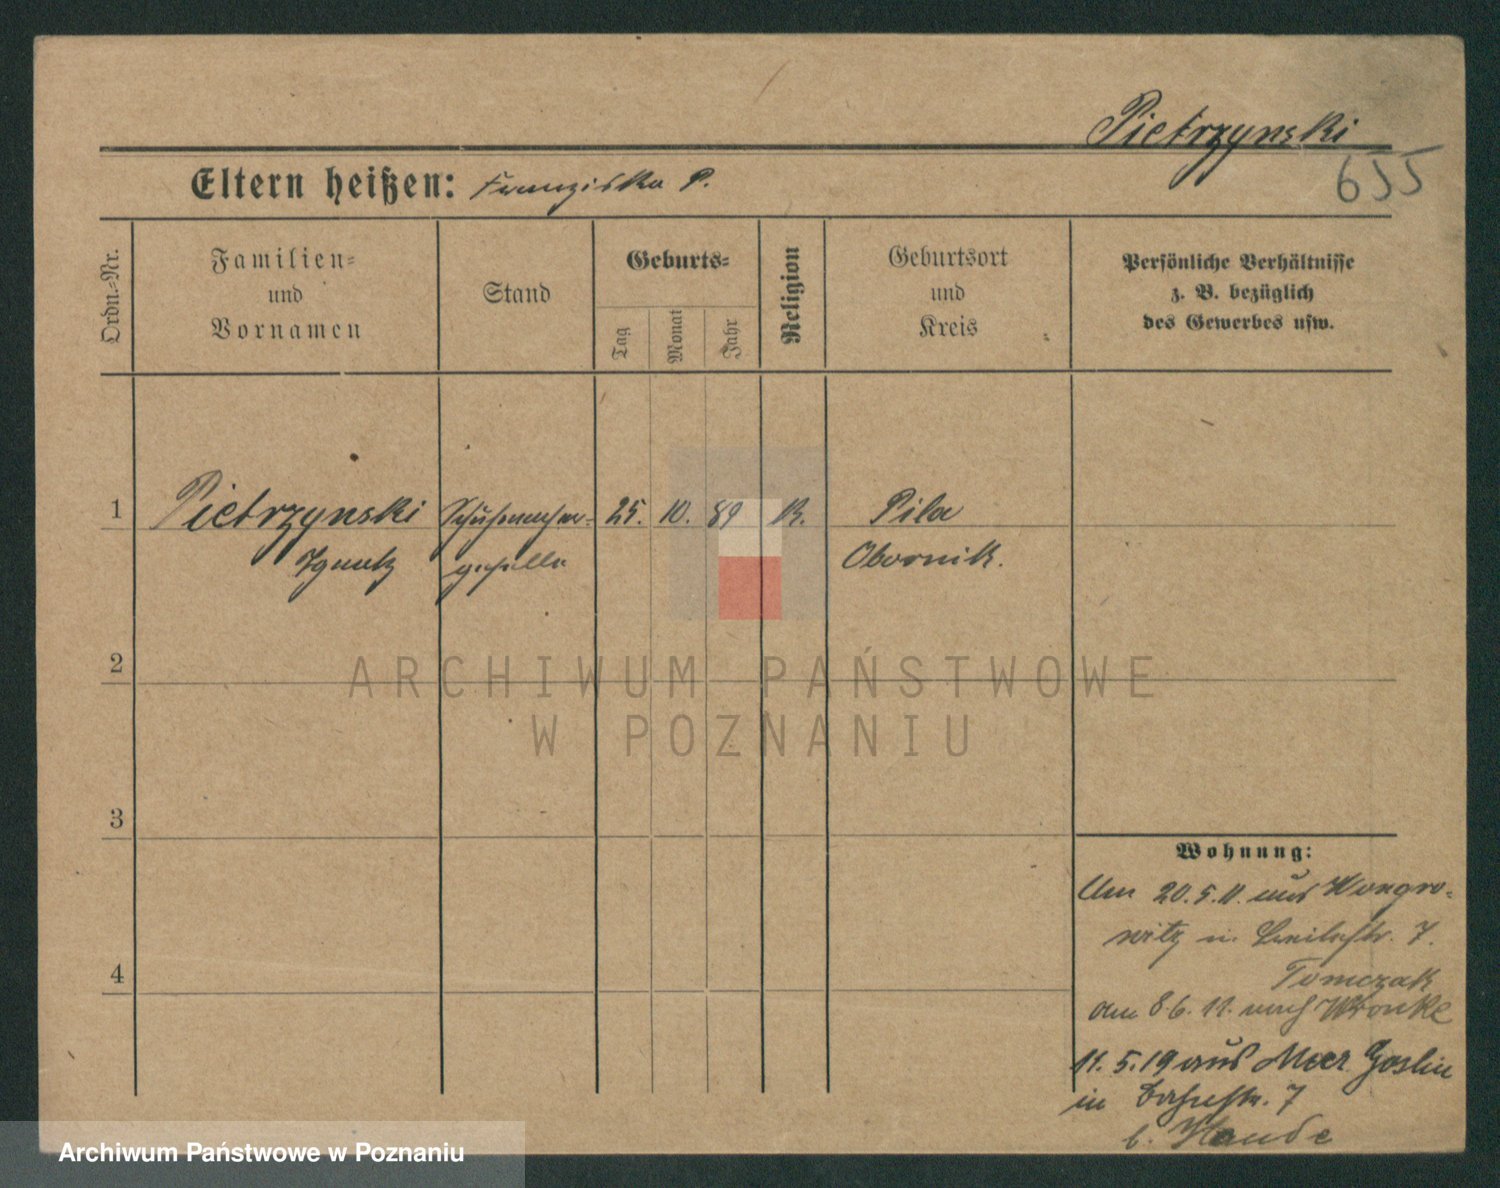 Pietrzynski
655
Eltern heißen: Franziska P.
Ordn.-Nr.
Familien-
und
Vornamen
Stand
Geburts-
Tag
Monat
Jahr
Religion
Geburtsort
und
Kreis
Persönliche Verhältnisse
z. B. bezüglich
des Gewerbes usw.
1 Pietrzynski Schuhmacher- 25. 10. 89 K. Pila
Ignatz geselle Obornik.
2
ARCHIWUM PAŃSTWOWE
W POZNANIU
3
4
Wohnung:
Am 20.5.11. aus Wongro-
witz in 7.
Tomczak
am 8.6.11. nach Wronke
11.5.19 aus Goslin
in Bahnstr. 7
b.
Archiwum Państwowe w Poznaniu